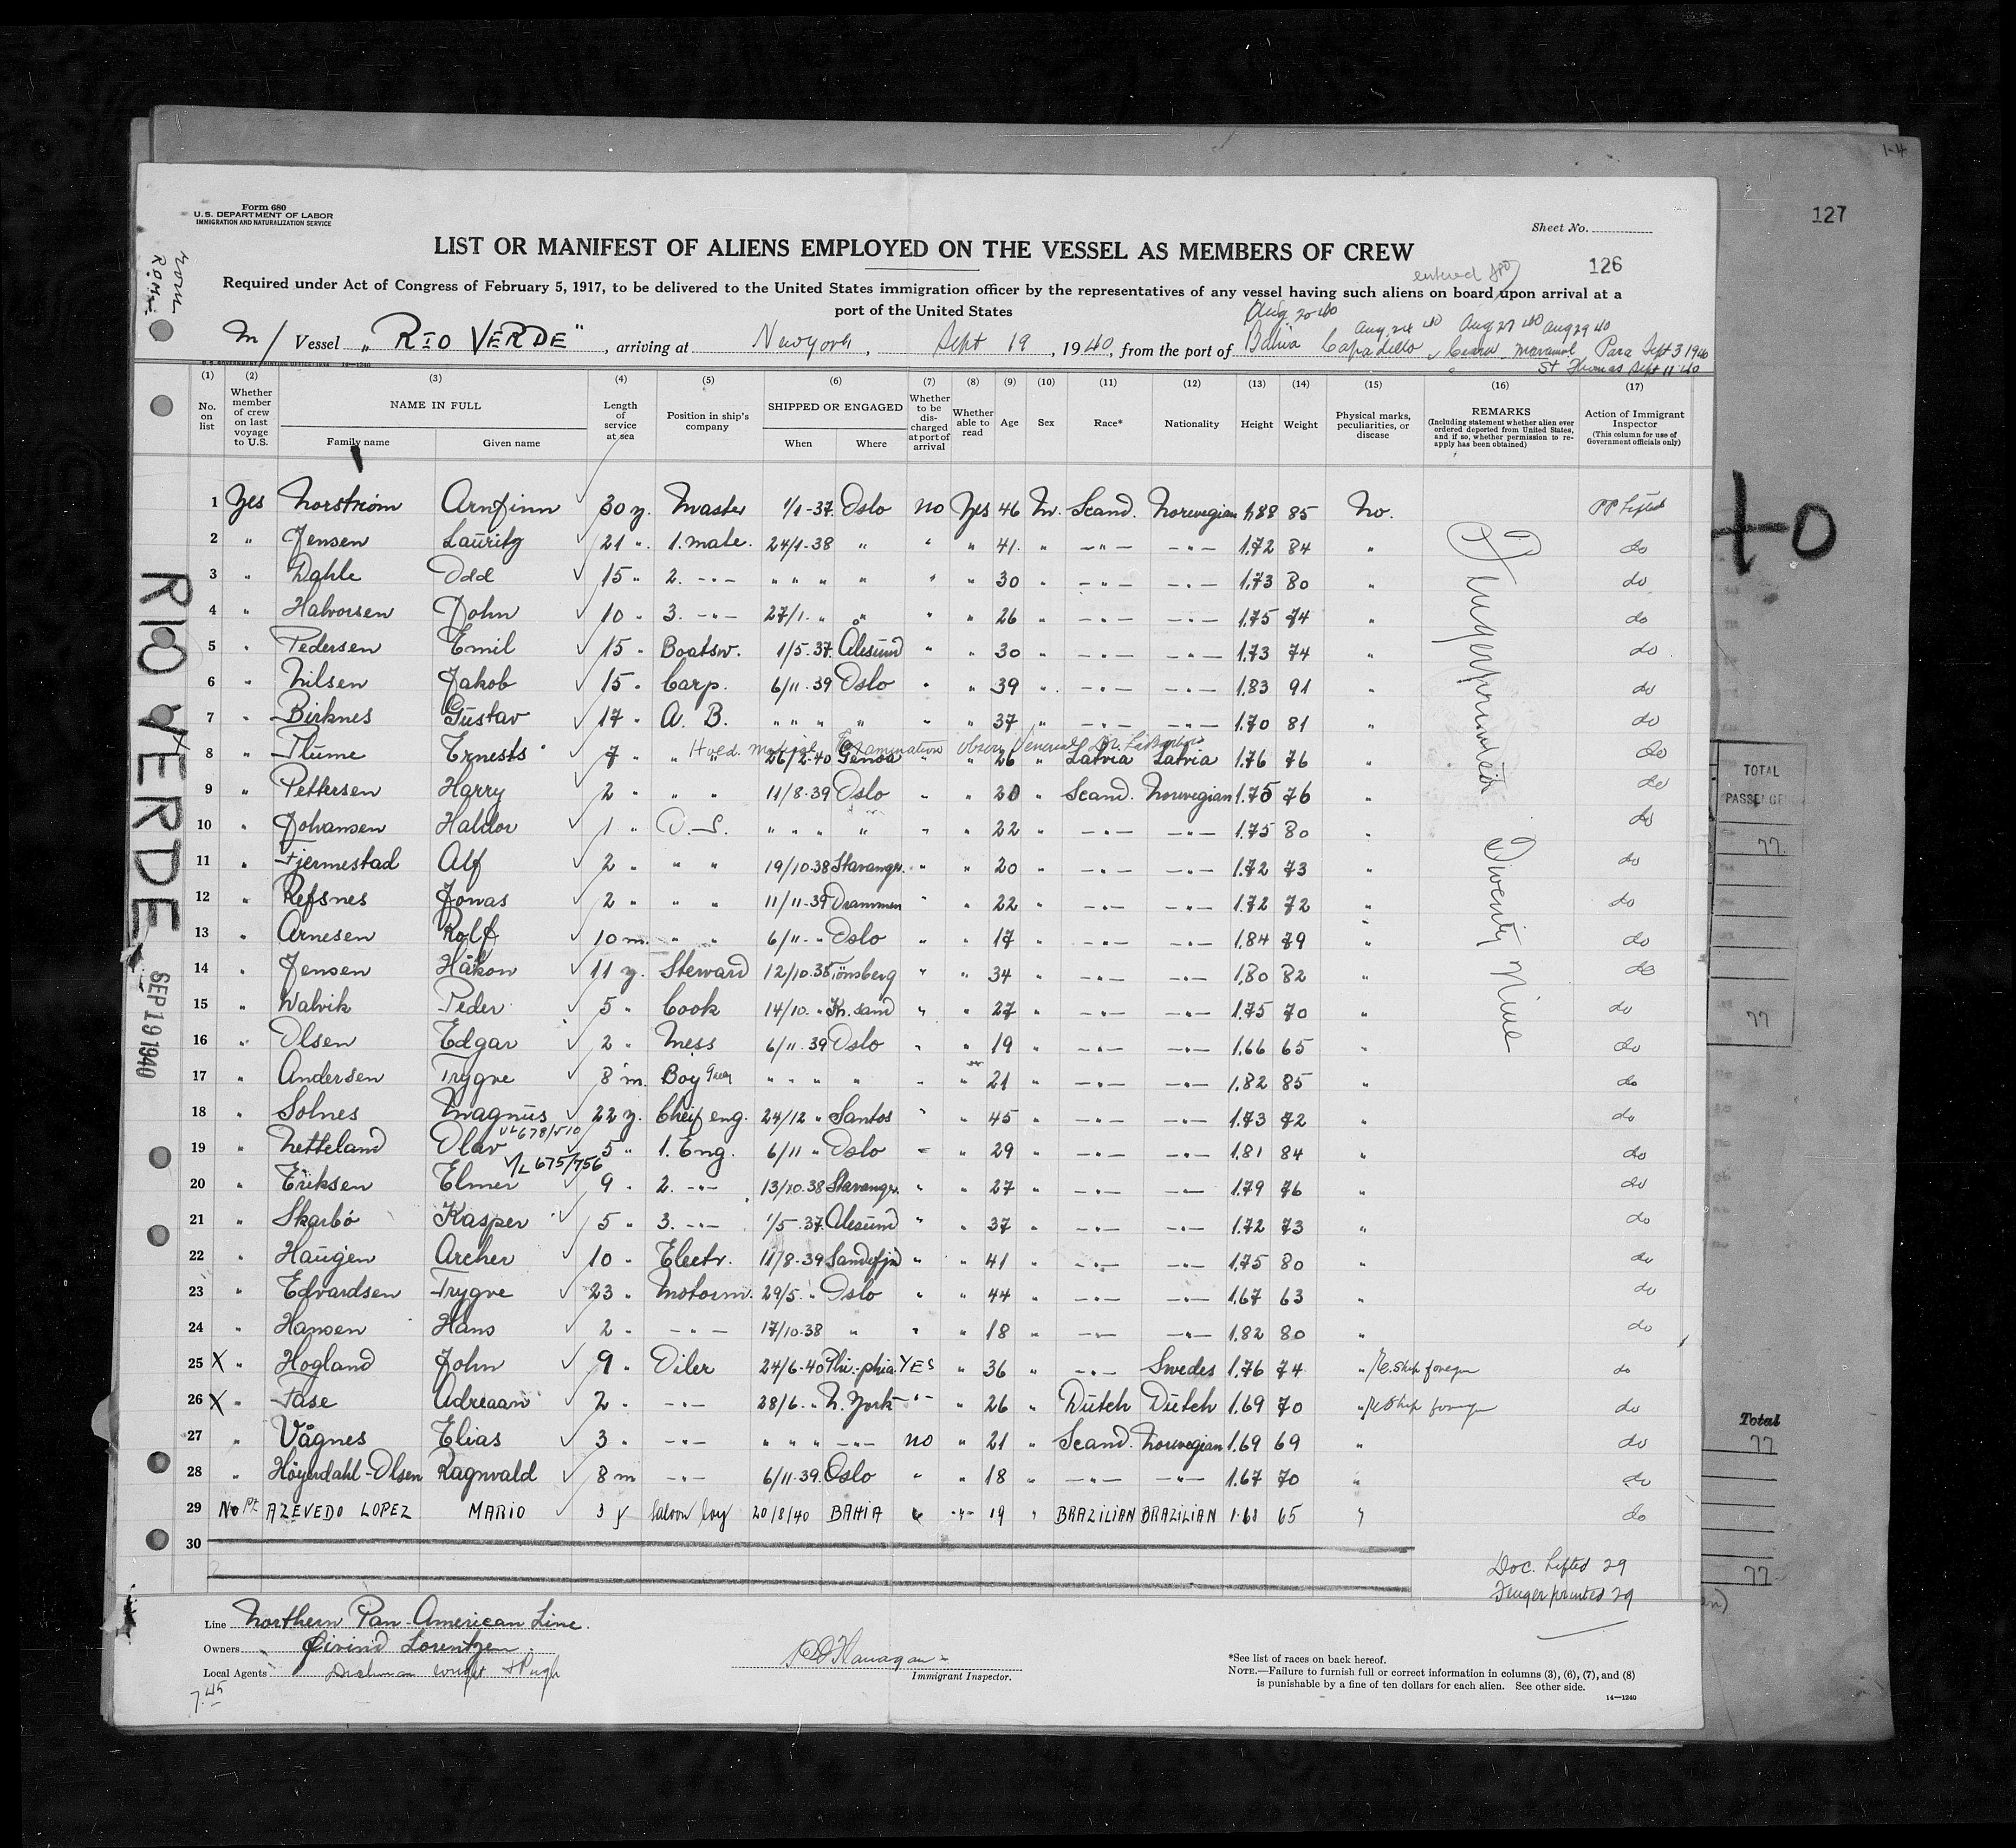 1-4
127
Form 680
U.S. DEPARTMENT OF LABOR
IMMIGRATION AND NATURALIZATION SERVICE
Sheet No.
LIST OR MANIFEST OF ALIENS EMPLOYED ON THE VESSEL AS MEMBERS OF CREW
126
entered
Required under Act of Congress of February 5, 1917, to be delivered to the United States immigration officer by the representatives of any vessel having such aliens on board upon arrival at a
port of the United States
Aug. 20 40 Aug 24 40 Aug 27 40 Aug 29 40
M/ Vessel „ RIO VERDE", arriving at New York, Sept 19, 1940, from the port of Bahia Capadello Ceara Para Sept 3 1940
St Thomas Sept 11 40
(1) (2) (3) (4) (5) (6) (7) (8) (9) (10) (11) (12) (13) (14) (15) (16) (17)
No. on list
Whether member of crew on last voyage to U.S.
NAME IN FULL
Family name Given name
Length of service at sea
Position in ship's company
SHIPPED OR ENGAGED
When Where
Whether to be discharged at port of arrival
Whether able to read
Age
Sex
Race*
Nationality
Height
Weight
Physical marks, peculiarities, or disease
REMARKS
(Including statement whether alien ever ordered deported from United States, and if so, whether permission to reapply has been obtained)
Action of Immigrant Inspector
(This column for use of Government officials only)
1 Yes Norstrøm Arnfinn 30 y. Master 1/1-37 Oslo No Yes 46 M. Scand. Norwegian 1.88 85 No. PP Lifted
2 " Jensen Lauritz 21 " 1. mate. 24/1-38 " " " 41 " -"- -"- 1.72 84 " do
3 " Dahle Odd 15 " 2. -"- " " " " " " 30 " -"- -"- 1.73 80 " do
4 " Halvorsen John 10 " 3. -"- 27/1. " " " " 26 " -"- -"- 1.75 74 " do
5 " Pedersen Emil 15 " Boatsw. 1/5-37 Ålesund " " 30 " -"- -"- 1.73 74 " do
6 " Nilsen Jakob 15 " Carp. 6/11-39 Oslo " " 39 " -"- -"- 1.83 91 " do
7 " Birknes Gustav 17 " A. B. " " " " " " 37 " -"- -"- 1.70 81 " do
Hold. medical Examination observ Venereal
8 " Plume Ernests 7 " " " 26/2-40 Genoa " " 26 " Latvia Latvia 1.76 76 " do
9 " Pettersen Harry 2 " " " 11/8-39 Oslo " " 20 " Scand. Norwegian 1.75 76 " do
10 " Johansen Haldor 1 " O.S. " " " " " " 22 " -"- -"- 1.75 80 " do
11 " Fjermestad Alf 2 " " " 19/10-38 Stavanger. " " 20 " -"- -"- 1.72 73 " do
12 " Refsnes Jonas 2 " " " 11/11-39 Drammen " " 22 " -"- -"- 1.72 72 " do
13 " Arnesen Rolf 10 m. " " 6/11. " Oslo " " 17 " -"- -"- 1.84 79 " do
14 " Jensen Håkon 11 y. Steward 12/10-38 Tönsberg " " 34 " -"- -"- 1.80 82 " do
15 " Walvik Peder 5 " Cook 14/10. " Kr.sand " " 27 " -"- -"- 1.75 70 " do
16 " Olsen Edgar 2 " Mess 6/11. 39 Oslo " " 19 " -"- -"- 1.66 65 " do
17 " Andersen Trygve 8 m. Boy " " " " " " 21 " -"- -"- 1.82 85 " do
18 " Solnes Magnus 22 y. Cheif eng. 24/12 " Santos " " 45 " -"- -"- 1.73 72 " do
VL 678/510
19 " Netteland Olav 5 " 1. Eng. 6/11 " Oslo " " 29 " -"- -"- 1.81 84 " do
V/L 675/756
20 " Eriksen Elmer 9 " 2. -"- 13/10.38 Stavanger. " " 27 " -"- -"- 1.79 76 " do
21 " Skarbö Kasper 5 " 3. -"- 1/5-37 Ålesund " " 37 " -"- -"- 1.72 73 " do
22 " Haugen Archer 10 " Electr. 11/8-39 Sandefjd " " 41 " -"- -"- 1.75 80 " do
23 " Edvardsen Trygve 23 " Motorm. 29/5. " Oslo " " 44 " -"- -"- 1.67 63 " do
24 " Hansen Hans 2 " -"- 17/10-38 " " " 18 " -"- -"- 1.82 80 " do
25 X " Hogland John 9 " Oiler 24/6-40 Phi.-phia YES " 36 " -"- Swedes 1.76 74 " Re.ship foreign do
26 X " Fase Adreaan 2 " -"- 28/6. " N. York -"- " 26 " Dutch Dutch 1.69 70 " Reship foreign do
27 " Vågnes Elias 3 " -"- " " " -"- no " 21 " Scand. Norwegian 1.69 69 " do
28 " Höyerdahl-Olsen Ragnvald 8 m -"- 6/11.39. Oslo " " 18 " -"- -"- 1.67 70 " do
29 No AZEVEDO LOPEZ MARIO 3 y Saloon boy 20/8/40 BAHIA " -"- 19 " BRAZILIAN BRAZILIAN 1.68 65 " do
30
Fingerprinted Twenty Nine
Doc. Lifted 29
Fingerprinted 29
Line Northern Pan-American Line.
Owners Øivind Lorentzen.
Local Agents Dichman Wright & Pugh
7.45
Flanagan
Immigrant Inspector.
*See list of races on back hereof.
NOTE.—Failure to furnish full or correct information in columns (3), (6), (7), and (8)
is punishable by a fine of ten dollars for each alien. See other side.
14—1240
RIO VERDE
SEP 19 1940
TOTAL
77
77
Total
77
77